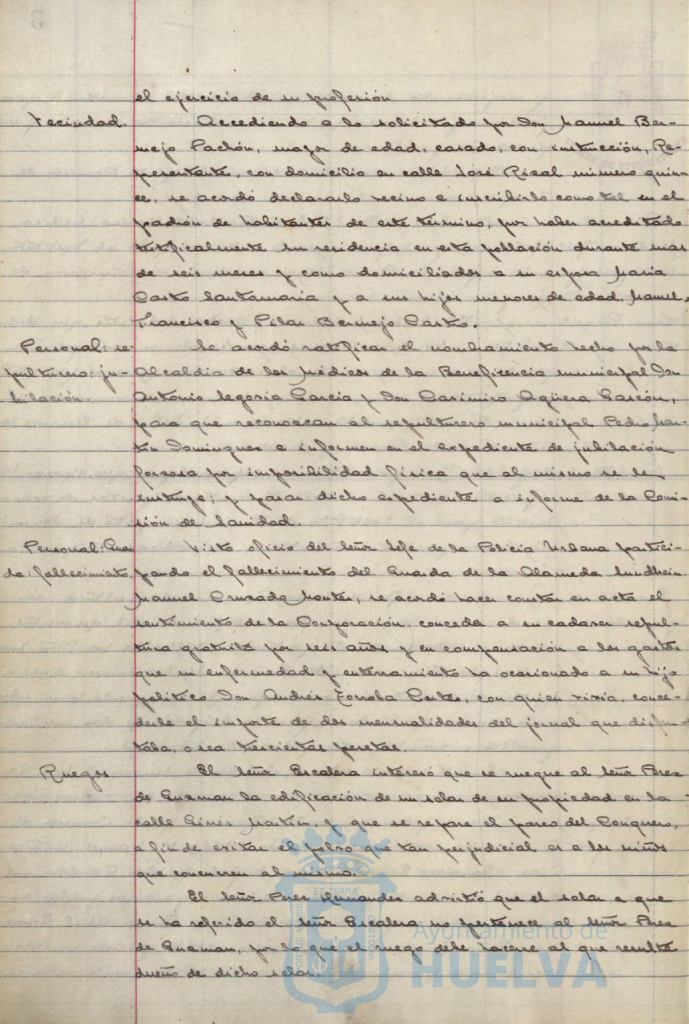 el ejercicio de su profesión
Vecindad. Accediendo a lo solicitado por Don Manuel Ber-
mejo Pachón, mayor de edad, casado, con instrucción, Re-
presentante, con domicilio en calle José Rizal número quin-
ce, se acordó declararlo vecino e inscribirlo como tal en el
padrón de habitantes de este término, por haber acreditado
testificalmente su residencia en esta población durante mas
de seis meses y como domiciliados a su esposa María
Castro Santamaria y a sus hijos menores de edad, Manuel,
Francisco y Pilar Bermejo Castro.
Personal: se- Se acordó ratificar el nombramiento hecho por la
pulturero: ju- Alcaldia de los Médicos de la Beneficencia municipal Don
bilación. Antonio Segovia García y Don Casimiro Agüera Garzón,
para que reconozcan al sepulturero municipal Pedro Mar-
tin Dominguez e informen en el expediente de jubilación
forzosa por imposibilidad física que al mismo se le
instruye; y pasar dicho expediente a informe de la Comi-
sión de Sanidad.
Personal: Guar- Visto oficio del Señor Jefe de la Policia Urbana partici-
da: fallecimiento. pando el fallecimiento del Guarda de la Alameda Sundheim
Manuel Cruzado, se acordó hacer constar en acta el
sentimiento de la Corporación, conceda a su cadaver sepul-
tura gratuita por seis años y en compensación a los gastos
que su enfermedad y enterramiento ha ocasionado a su hijo
politico Don Andrés Cortes, con quien vivia, conce-
derle el importe de dos mensualidades del jornal que disfru-
taba, o sea trescientas pesetas.
Ruegos El Señor Escalera interesó que se ruegue al Señor Perez
de Guzman la edificación de un solar de su propiedad en la
calle Ginés Martin, y que se repare el paseo del Conquero,
a fin de evitar el polvo que tan perjudicial es a los niños
que concurren al mismo.
El Señor Perez Hernandez advirtió que el solar a que
se ha referido el Señor Escalera no pertenece al Señor Perez
de Guzman, por lo que el ruego debe hacerse al que resulte
dueño de dicho solar.
Ayuntamiento de
HUELVA